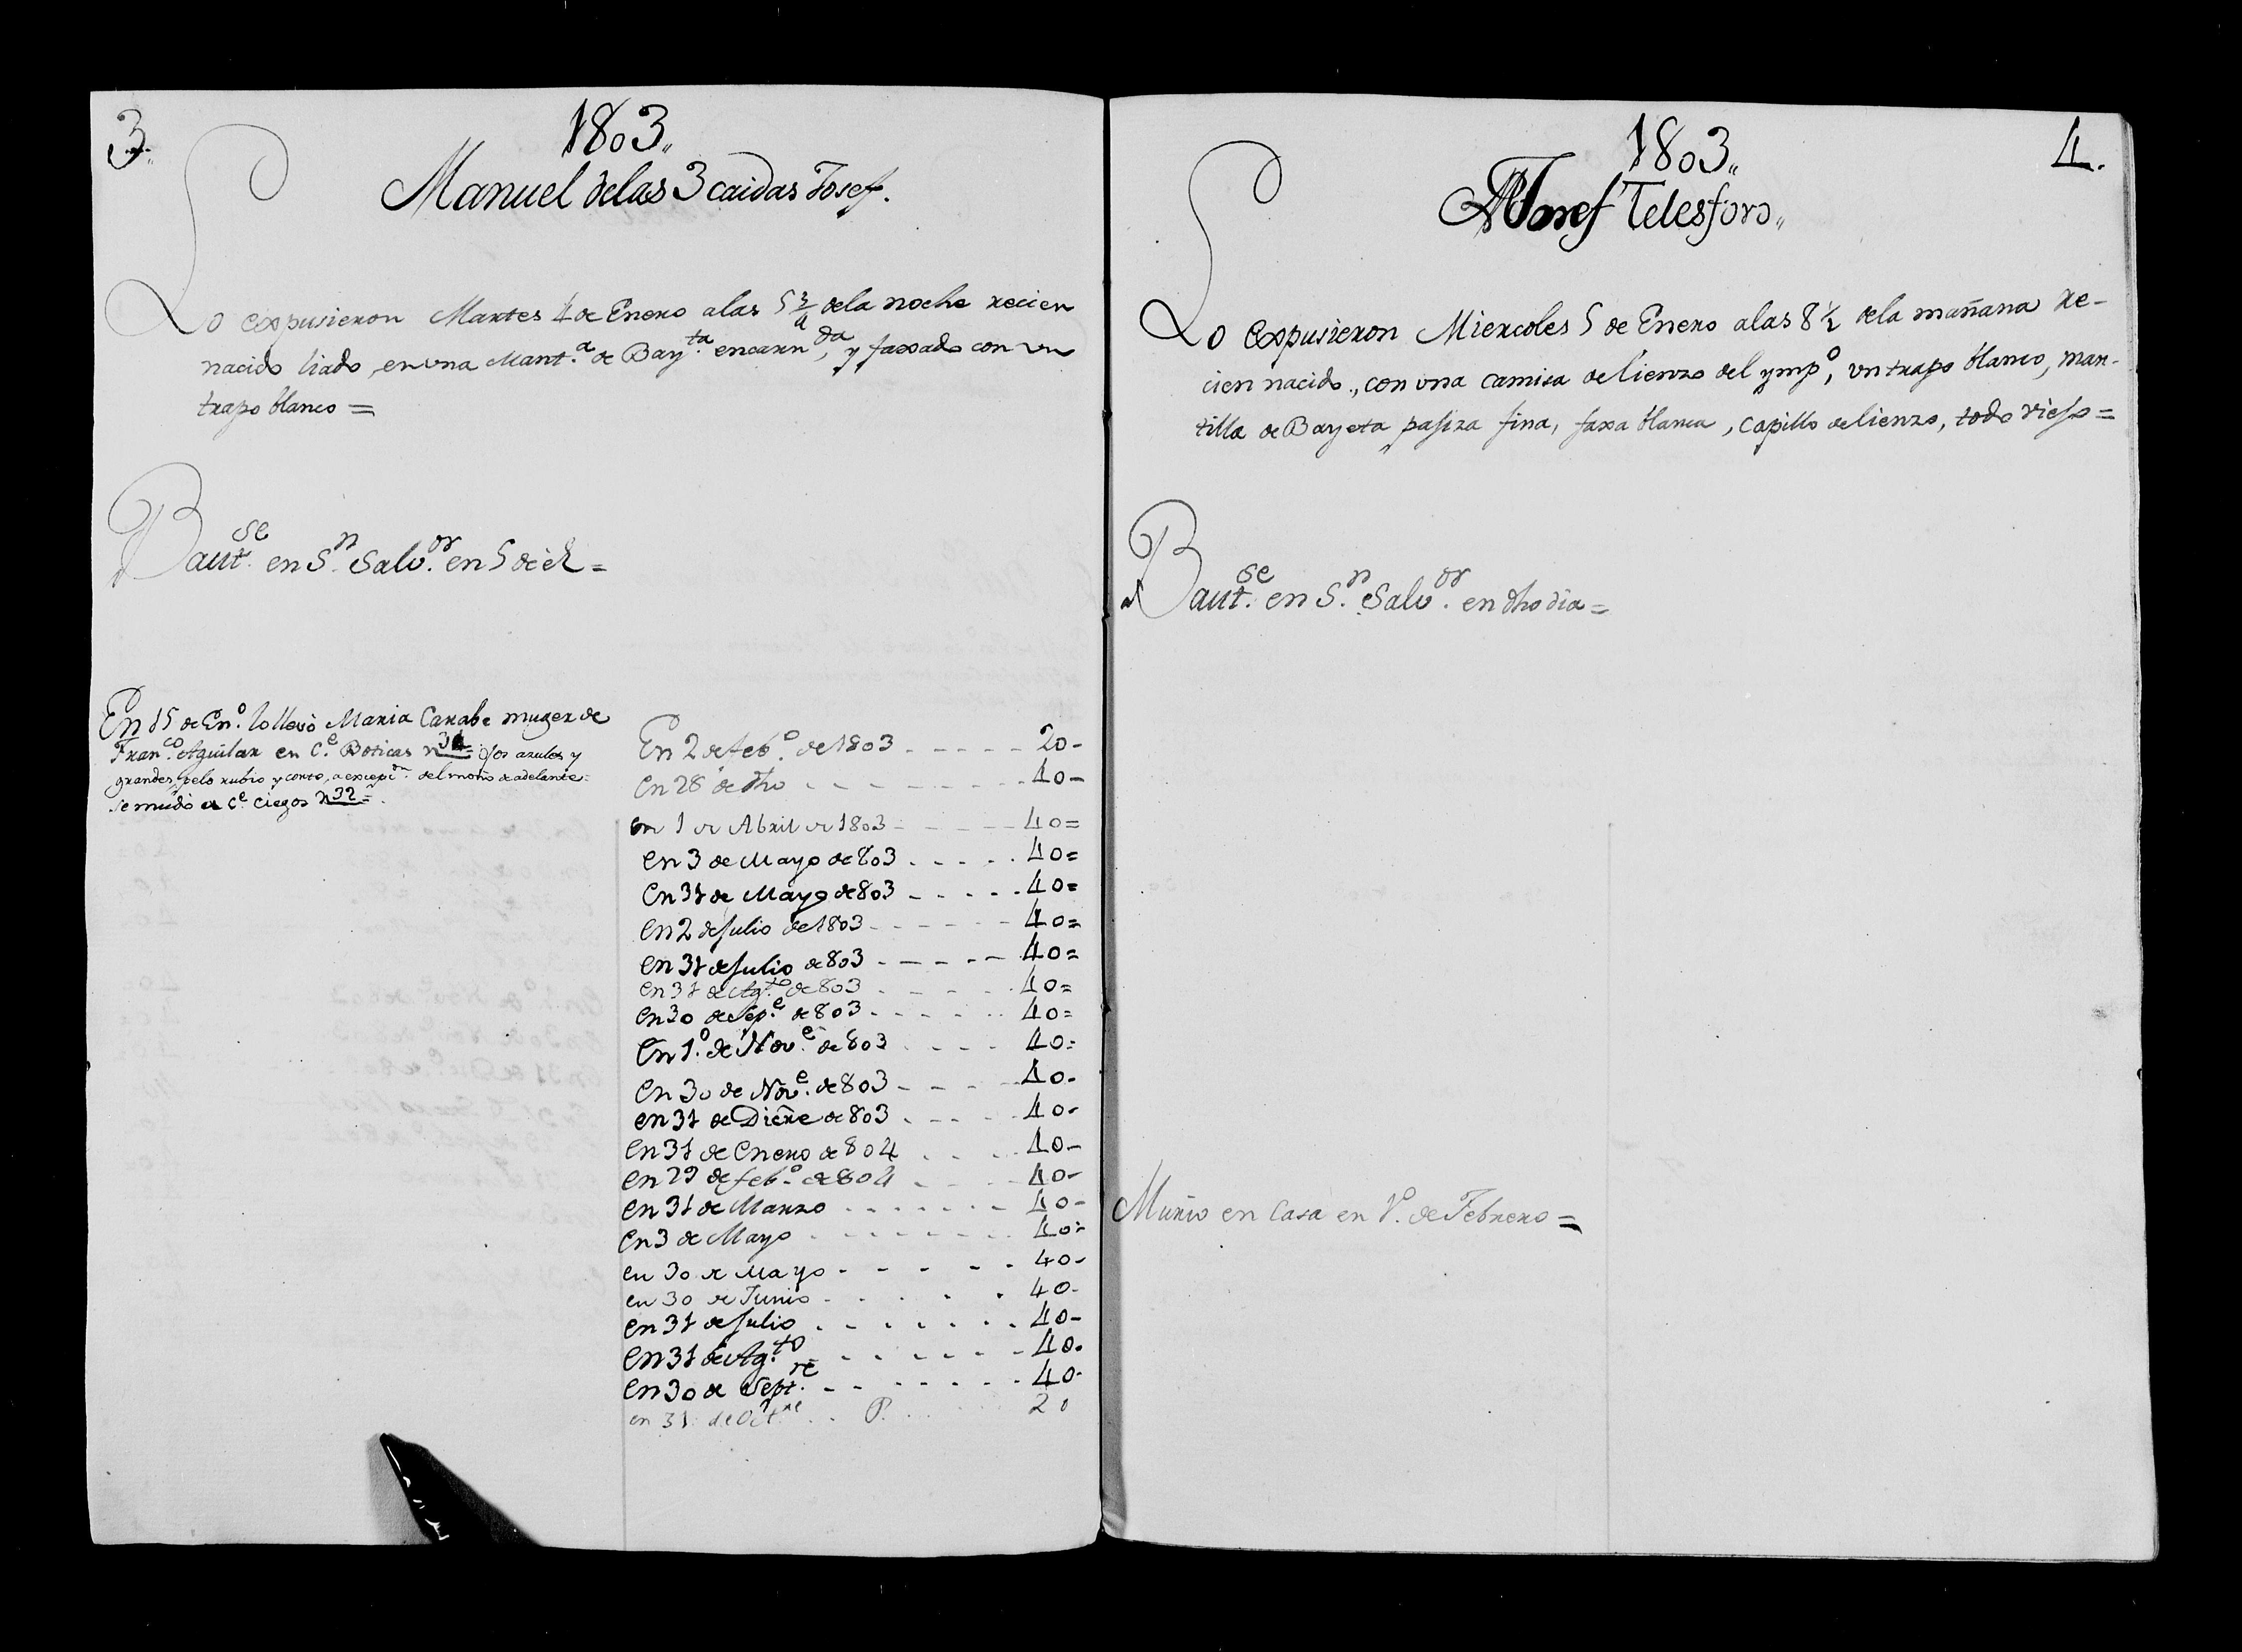 3.
1803,,
Manuel de las 3 caidas Josef.
Lo expusieron Martes 4 de Enero a las 5 3/4 de la noche recien
nacido liado, en una Mant.ª de Bay.ta encarn.da, y faxado con un
trapo blanco =
Baut.se en S.n Salv.or en 5 de él =
En 15 de En.º lo llevó Maria Carabe muger de
Fran.co Aguilar en C.e Boticas n 34 ojos azules y
grandes, pelo rubio y corto, a excepc.n del moño de adelante =
se mudó a C.e Ciegos n 32 =
En 2 de feb.º de 1803 - - - - - 20-
En 28 de dho - - - - - 40-
en 1 de Abril de 1803 - - - - - 40=
en 3 de Mayo de 803 - - - - - 40=
en 31 de Mayo de 803 - - - - - 40=
en 2 de Julio de 1803 - - - - - 40=
en 31 de Julio de 803 - - - - - 40=
en 31 de Ag.to de 803 - - - - - 40=
en 30 de Sep.e de 803 - - - - - 40=
En 1.º de Nov.e de 803 - - - - 40=
En 30 de Nov.e de 803 - - - - 40-
en 31 de Dicñe de 803 - - - - 40-
en 31 de Enero de 804 - - - - 40-
en 29 de feb.º de 804 - - - - 40-
en 31 de Marzo - - - - - - - 40-
en 3 de Mayo - - - - - - - 40-
en 30 de Mayo - - - - - 40-
en 30 de Junio - - - - - 40-
en 31 de Julio - - - - - - - 40-
en 31 de Ag.to - - - - - - - 40-
en 30 de Sept.re - - - - - - - 40-
en 31 de Oct.re . . P. . . . 20
1803,,
4.
Josef Telesforo,,
Lo expusieron Miercoles 5 de Enero a las 8 1/2 de la mañana re-
cien nacido, con una camisa de lienzo del ymp.º, un trapo blanco, man-
tilla de Bayeta pajiza fina, faxa blanca, capillo de lienzo, todo viejo =
Baut.se en S.n Salv.or en dho dia =
Murio en Casa en 1.º de Febrero =